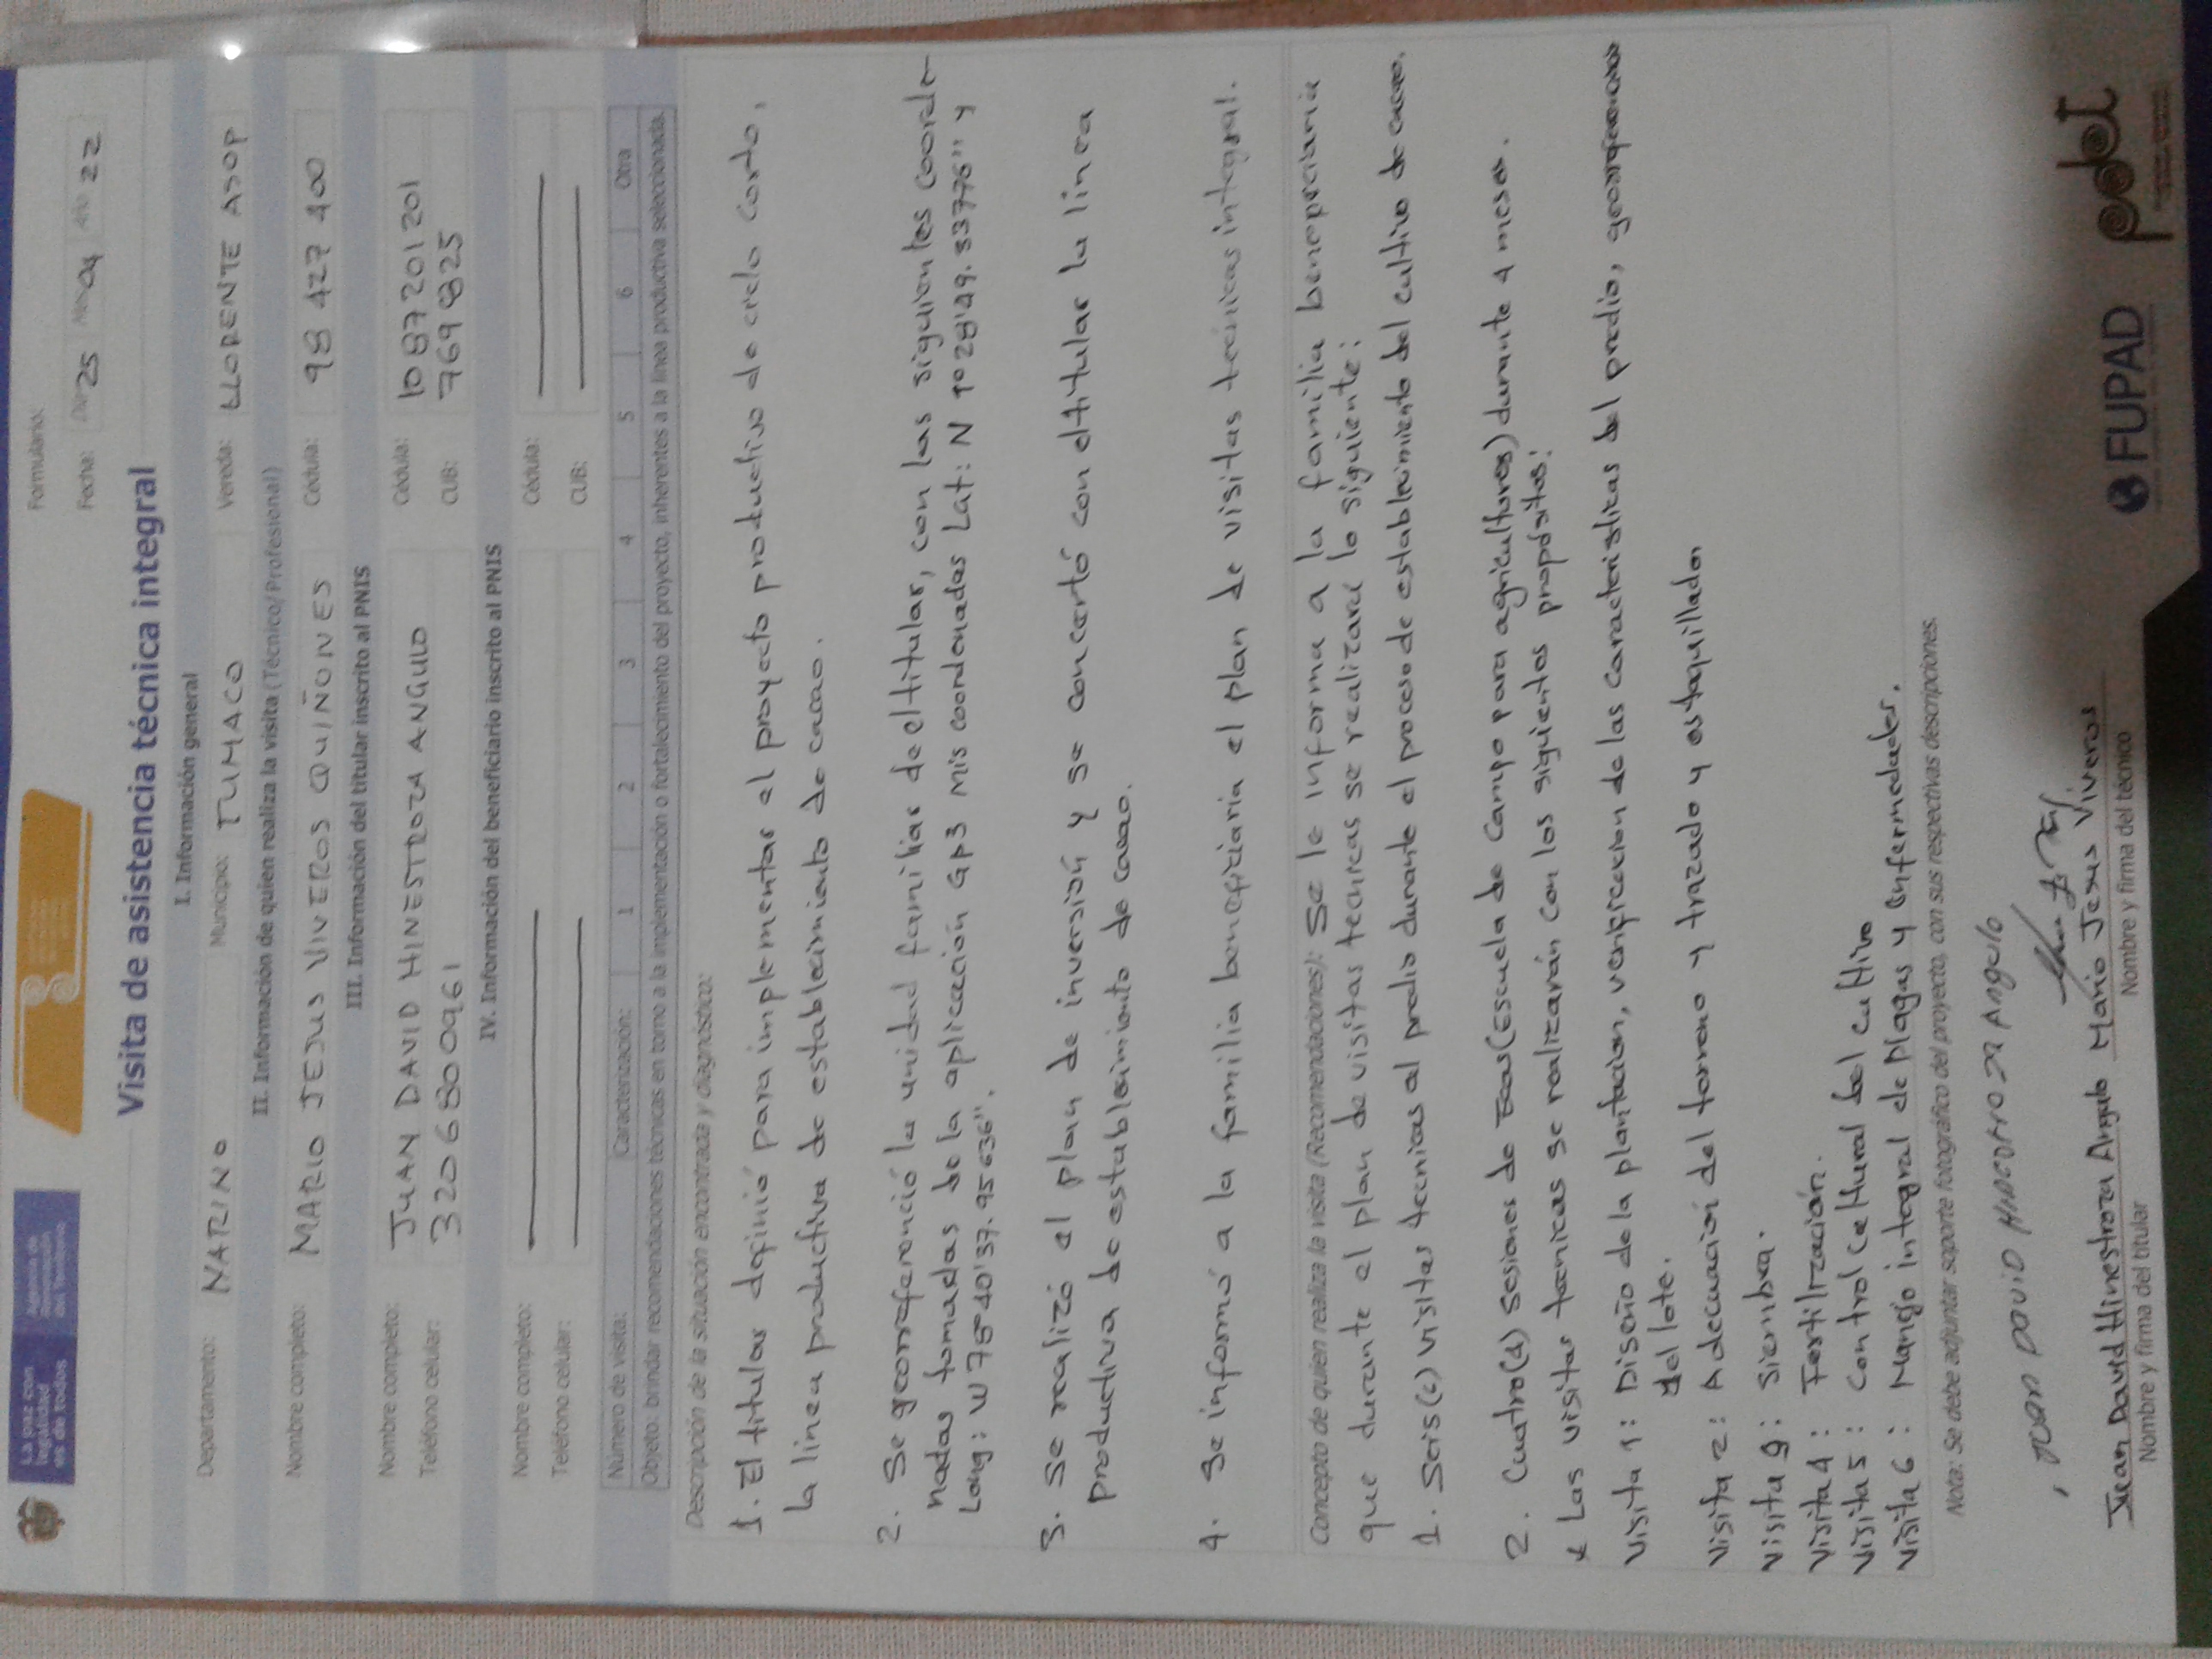 La paz con
legalidad
es de todos
Agencia de
Renovación
del Territorio
Formulario:
Fecha: Día 25 Mes 04 Año 22
Visita de asistencia técnica integral
I. Información general
Departamento: NARINO Municipio: TUMACO Vereda: LLORENTE ASOP
II. Información de quien realiza la visita (Técnico/Profesional)
Nombre completo: MARIO JESUS VIVEROS QUIÑONES Cédula: 98 427 400
III. Información del titular inscrito al PNIS
Nombre completo: JUAN DAVID HINESTROZA ANGULO Cédula: 1087201201
Teléfono celular: 3206800961 CUB: 769825
IV. Información del beneficiario inscrito al PNIS
Nombre completo: Cédula:
Teléfono celular: CUB:
Número de visita: Caracterización: 1 2 3 4 5 6 Otra
Objeto: brindar recomendaciones técnicas en torno a la implementación o fortalecimiento del proyecto, inherentes a la línea productiva seleccionada.
Descripción de la situación encontrada y diagnóstico:
1. El titular definió para implementar el proyecto productivo de ciclo corto,
la linea productiva de establecimiento de cacao.
2. Se georreferenció la unidad familiar del titular, con las siguientes coorde-
nadas tomadas de la aplicación GP3 mis coordenadas Lat: N 1° 28' 49.53776" y
Long: W 78° 40' 37.95636".
3. Se realizó el plan de inversión y se concertó con el titular la linea
productiva de establesimiento de cacao.
4. Se informó a la familia beneficiaria el plan de visitas técnicas integral.
Concepto de quien realiza la visita (Recomendaciones): Se le informa a la familia beneficiaria
que durante el plan de visitas técnicas se realizará lo siguiente:
1. Seis (6) visitas tecnicas al predio durante el proceso de establecimiento del cultivo de cacao.
2. Cuatro (4) sesiones de Ecas (Escuela de Campo para agricultores) durante 4 meses.
* Las visitas tecnicas se realizarán con los siguientes propósitos:
Visita 1: Diseño de la plantacion, verificacion de las caracteristicas del predio,
del lote.
Visita 2: Adecuación del terreno y trazado y estaquillado
Visita 3: Siembra.
Visita 4: Fertilización.
Visita 5: Control cultural del cultivo
Visita 6: Manejo integral de plagas y enfermedades.
Nota: Se debe adjuntar soporte fotográfico del proyecto, con sus respectivas descripciones.
JUAN DAVID HINESTROZA Angulo
Juan David Hinestroza Angulo Mario Jesus Viveros
Nombre y firma del titular Nombre y firma del técnico
FUPAD pdet